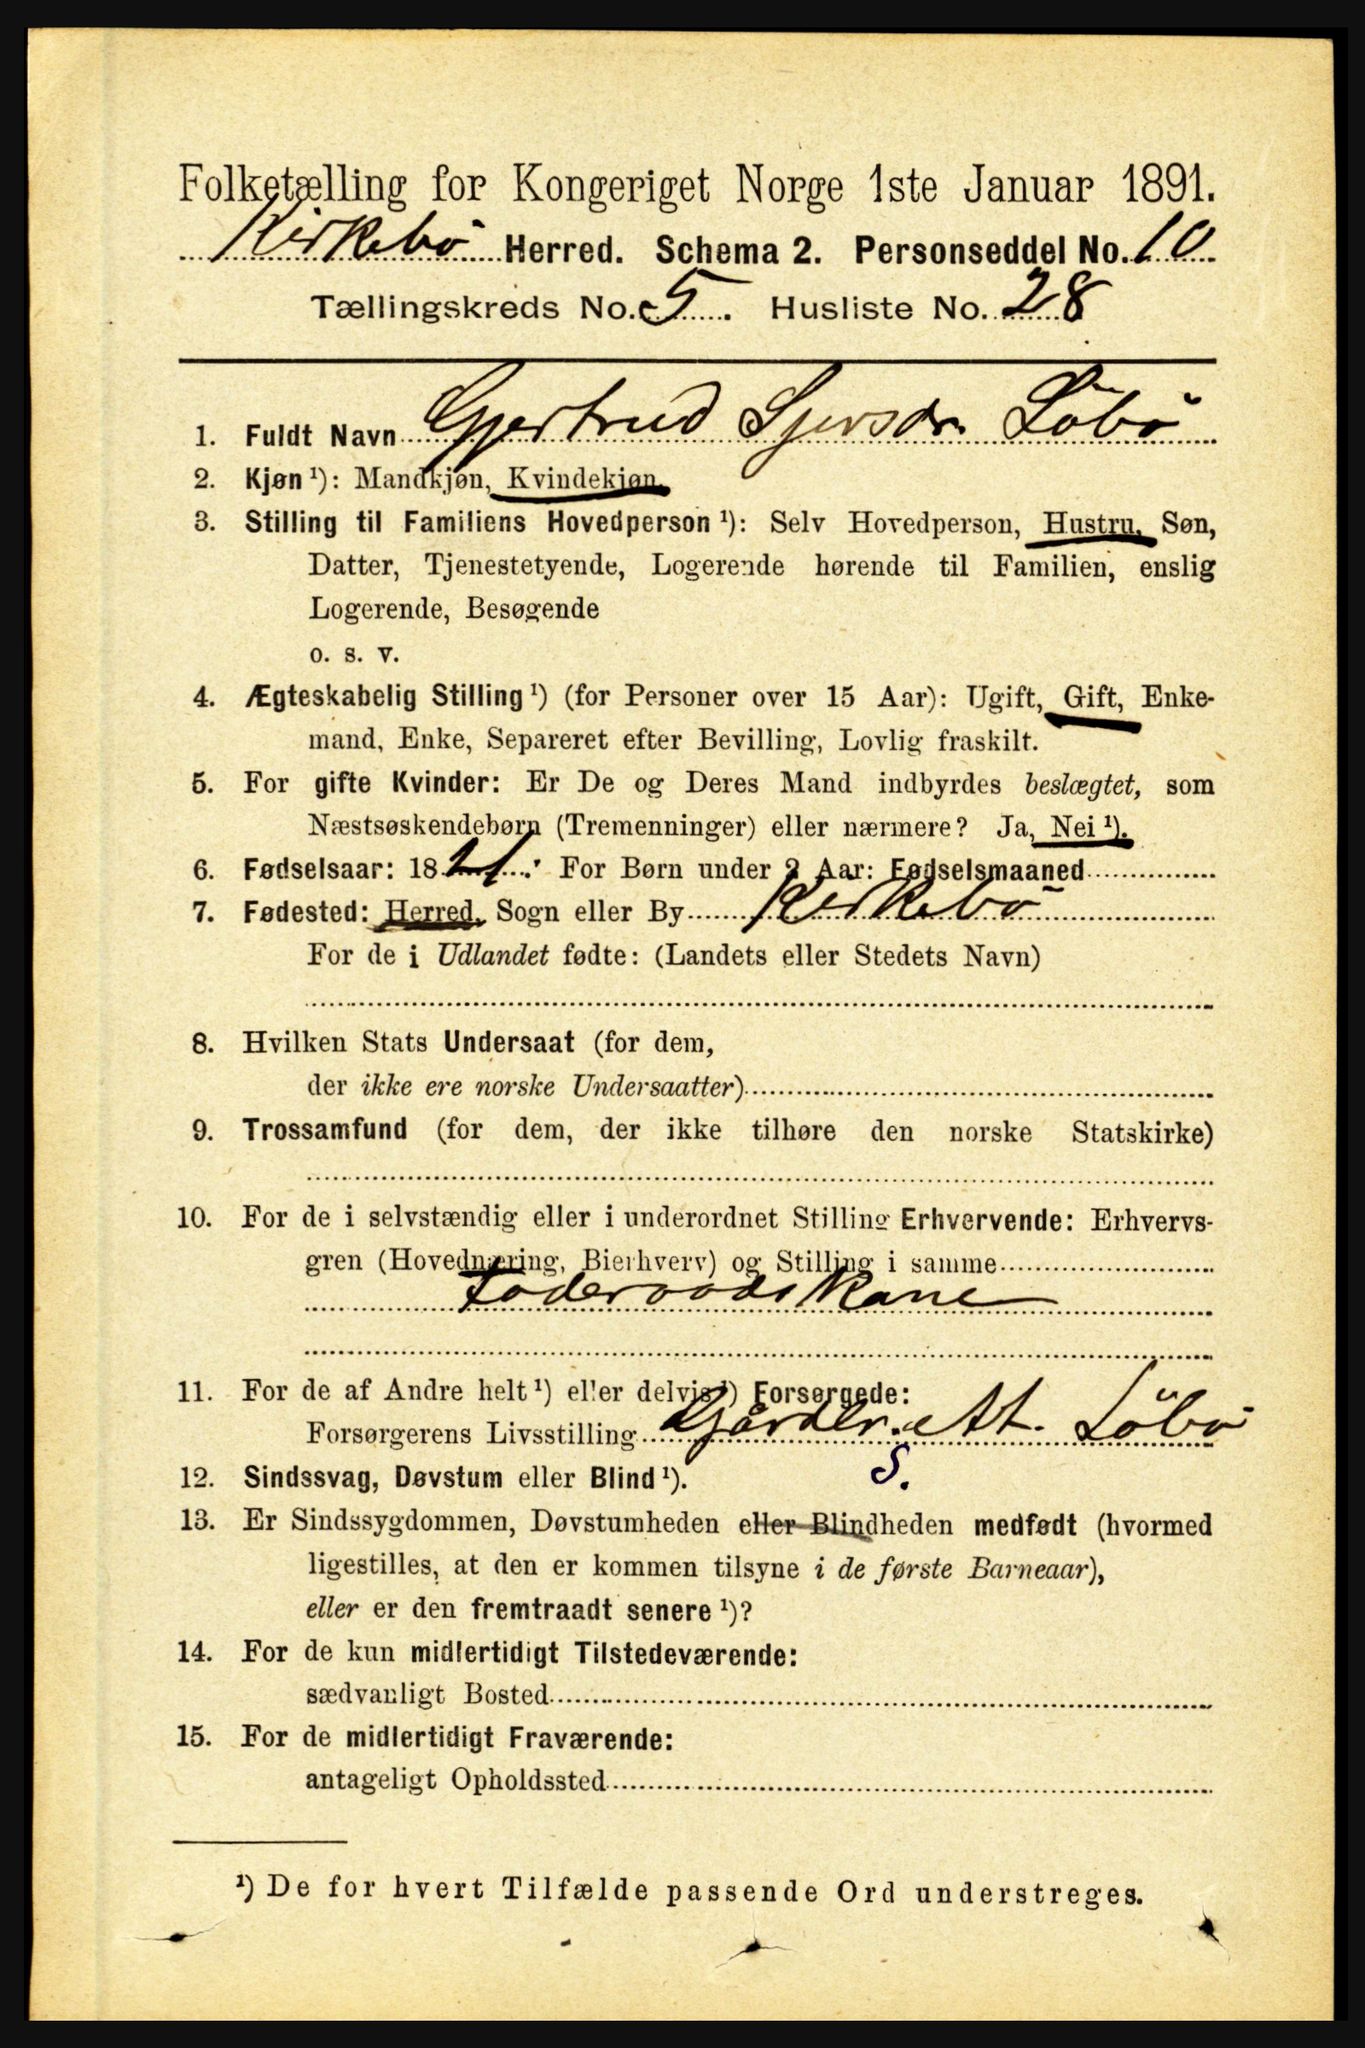 Folketælling for Kongeriget Norge 1ste Januar 1891.
Kirkebø Herred. Schema 2. Personseddel No. 10
Tællingskreds No. 5. Husliste No. 28
1. Fuldt Navn Gjertrud Sjursdr. Løbø
2. Kjøn ¹): Mandkjøn, Kvindekjøn.
3. Stilling til Familiens Hovedperson ¹): Selv Hovedperson, Hustru, Søn,
Datter, Tjenestetyende, Logerende hørende til Familien, enslig
Logerende, Besøgende
o. s. v.
4. Ægteskabelig Stilling ¹) (for Personer over 15 Aar): Ugift, Gift, Enke-
mand, Enke, Separeret efter Bevilling, Lovlig fraskilt.
5. For gifte Kvinder: Er De og Deres Mand indbyrdes beslægtet, som
Næstsøskendebørn (Tremenninger) eller nærmere? Ja, Nei ¹).
6. Fødselsaar: 1821. For Børn under 2 Aar: Fødselsmaaned
7. Fødested: Herred, Sogn eller By Kirkebø
For de i Udlandet fødte: (Landets eller Stedets Navn)
8. Hvilken Stats Undersaat (for dem,
der ikke ere norske Undersaatter)
9. Trossamfund (for dem, der ikke tilhøre den norske Statskirke)
10. For de i selvstændig eller i underordnet Stilling Erhvervende: Erhvervs-
gren (Hovednæring, Bierhverv) og Stilling i samme
Foderaadskone
11. For de af Andre helt ¹) eller delvis ¹) Forsørgede:
Forsørgerens Livsstilling Gårdbr. Løbø
S.
12. Sindssvag, Døvstum eller Blind ¹).
13. Er Sindssygdommen, Døvstumheden eller Blindheden medfødt (hvormed
ligestilles, at den er kommen tilsyne i de første Barneaar),
eller er den fremtraadt senere ¹)?
14. For de kun midlertidigt Tilstedeværende:
sædvanligt Bosted
15. For de midlertidigt Fraværende:
antageligt Opholdssted
¹) De for hvert Tilfælde passende Ord understreges.